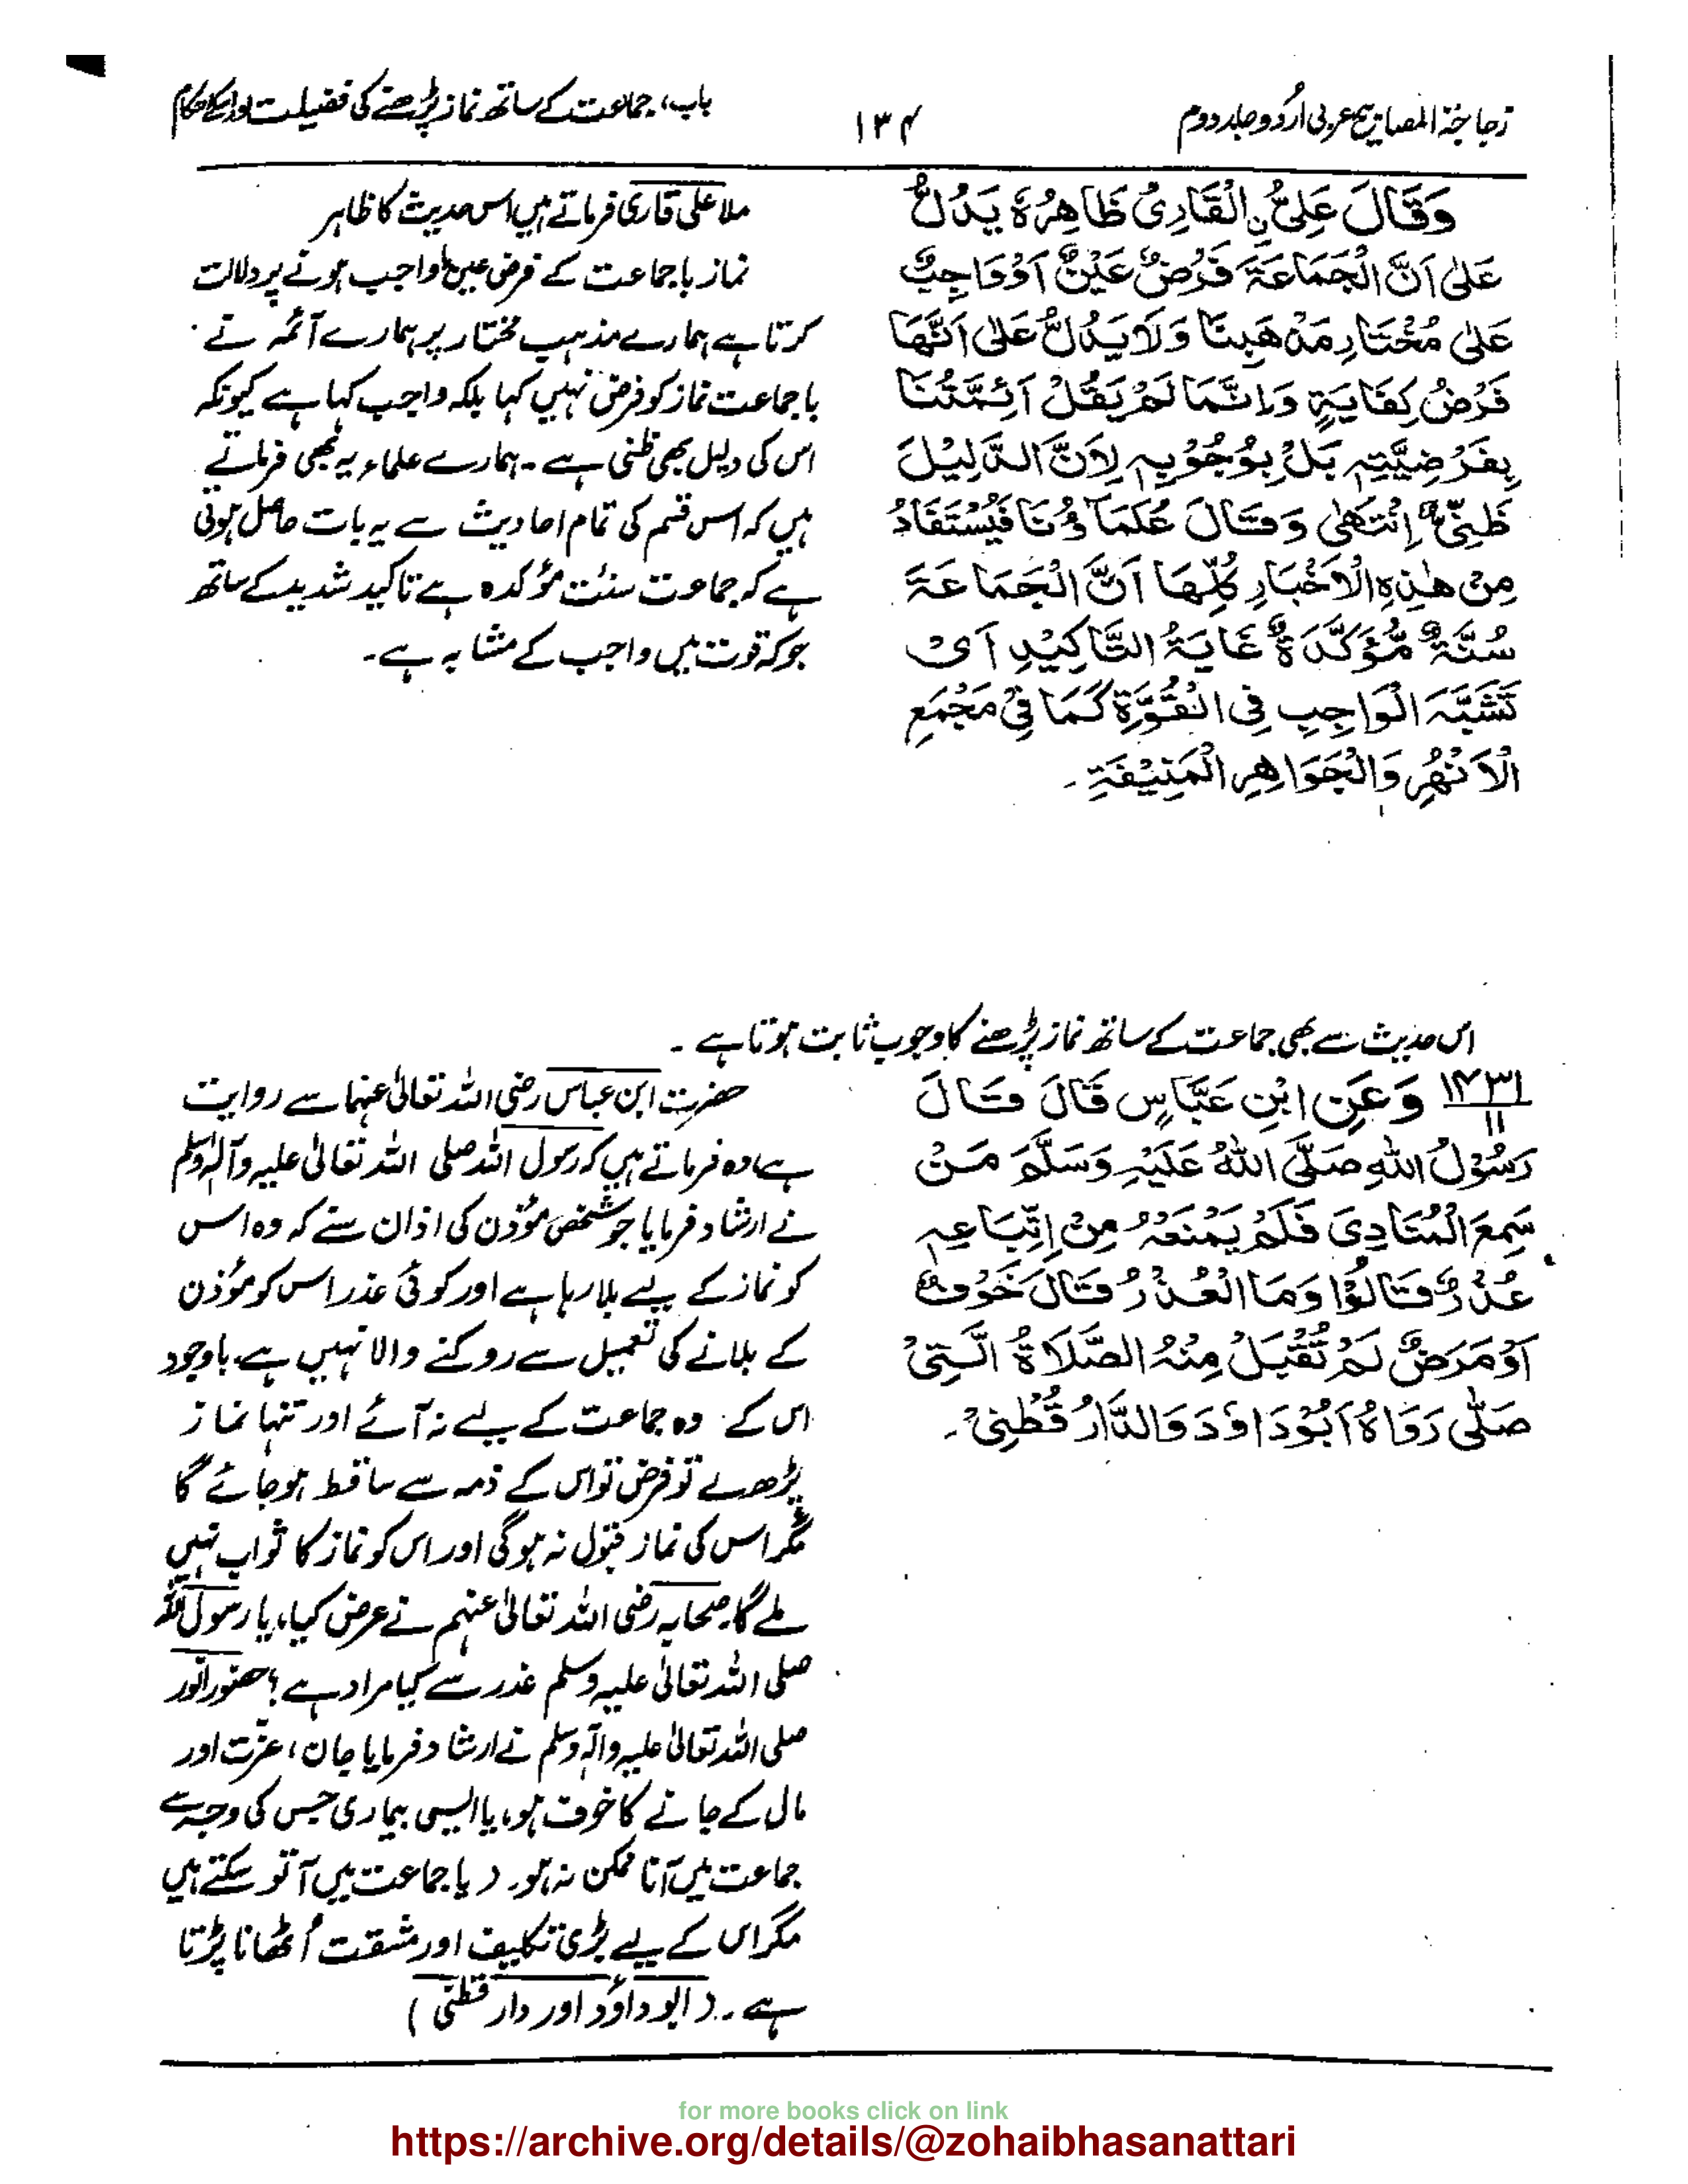 زجاجۃ المصابیح عربی اُردو جلد دوم
۱۳۴
باب، جماعت کے ساتھ نماز پڑھنے کی فضیلت اور اسکے احکام
وَقَالَ عَلِیُّ نِ الْقَارِیُ ظَاهِرُهٗ يَدُلُّ
عَلٰى اَنَّ الْجَمَاعَةَ فَرْضٌ عَيْنٌ اَوْ وَاجِبٌ
عَلٰى مُخْتَارِ مَذْهَبِنَا وَلَا يَدُلُّ عَلٰى اَنَّهَا
فَرْضُ كِفَايَةٍ وَاِنَّمَا لَمْ يَقُلْ اَئِمَّتُنَا
بِفَرْضِيَّتِهٖ بَلْ بِوُجُوْبِهٖ لِاَنَّ الدَّلِيْلَ
ظَنِّیٌّ اِنْتَهٰى وَقَالَ عُلَمَاؤُنَا فَيُسْتَفَادُ
مِنْ هٰذِهِ الْاَخْبَارِ كُلِّهَا اَنَّ الْجَمَاعَةَ
سُنَّةٌ مُّؤَكَّدَةٌ غَايَةُ التَّاكِيْدِ اَیْ
تَشَبَّهَ الْوَاجِبِ فِی الْقُوَّةِ كَمَا فِیْ مَجْمَعِ
الْاَنْهُرِ وَالْجَوَاهِرِ الْمَنِيْفَةِ۔
ملا علی قاری فرماتے ہیں اس حدیث کا ظاہر
نماز باجماعت کے فرض عین یا واجب ہونے پر دلالت
کرتا ہے ہمارے مذہب مختار پر ہمارے آئمہ نے
باجماعت نماز کو فرض نہیں کہا بلکہ واجب کہا ہے کیونکہ
اس کی دلیل بھی ظنی ہے۔ ہمارے علماء یہ بھی فرماتے
ہیں کہ اس قسم کی تمام احادیث سے یہ بات حاصل ہوتی
ہے کہ جماعت سنت مؤکدہ ہے تاکید شدید کے ساتھ
جو کہ قوت میں واجب کے مشابہ ہے۔
اس حدیث سے بھی جماعت کے ساتھ نماز پڑھنے کا وجوب ثابت ہوتا ہے۔
۱۴۳۱ وَعَنِ ابْنِ عَبَّاسٍ قَالَ قَالَ
۱۱
رَسُوْلُ اللّٰهِ صَلَّى اللّٰهُ عَلَيْهِ وَسَلَّمَ مَنْ
سَمِعَ الْمُنَادِیَ فَلَمْ يَمْنَعْهُ مِنْ اِتِّبَاعِهٖ
عُذْرٌ قَالُوْا وَمَا الْعُذْرُ قَالَ خَوْفٌ
اَوْ مَرَضٌ لَمْ تُقْبَلْ مِنْهُ الصَّلَاةُ الَّتِیْ
صَلّٰى رَوَاهُ اَبُوْدَاوٗدَ وَالدَّارُ قُطْنِیْ۔
حضرت ابن عباس رضی اللہ تعالیٰ عنہما سے روایت
ہے وہ فرماتے ہیں کہ رسول اللہ صلی اللہ تعالیٰ علیہ وآلہٖ وسلم
نے ارشاد فرمایا جو شخص مؤذن کی اذان سنے کہ وہ اس
کو نماز کے لیے بلا رہا ہے اور کوئی عذر اس کو مؤذن
کے بلانے کی تعمیل سے روکنے والا نہیں ہے، باوجود
اس کے وہ جماعت کے لیے نہ آئے اور تنہا نماز
پڑھے تو فرض تو اس کے ذمہ سے ساقط ہو جائے گا
مگر اس کی نماز قبول نہ ہو گی اور اس کو نماز کا ثواب نہیں
ملے گا۔ صحابہ رضی اللہ تعالیٰ عنہم نے عرض کیا، یا رسول اللہ
صلی اللہ تعالیٰ علیہ وسلم عذر سے کیا مراد ہے؟ حضور انور
صلی اللہ تعالیٰ علیہ وآلہٖ وسلم نے ارشاد فرمایا جان، عزت اور
مال کے جانے کا خوف ہو، یا ایسی بیماری جس کی وجہ سے
جماعت میں آنا ممکن نہ ہو۔ (یا جماعت میں آ تو سکتے ہیں
مگر اس کے لیے بڑی تکلیف اور مشقت اُٹھانا پڑتا
ہے۔ (ابو داؤد اور دار قطنی)
for more books click on link
https://archive.org/details/@zohaibhasanattari